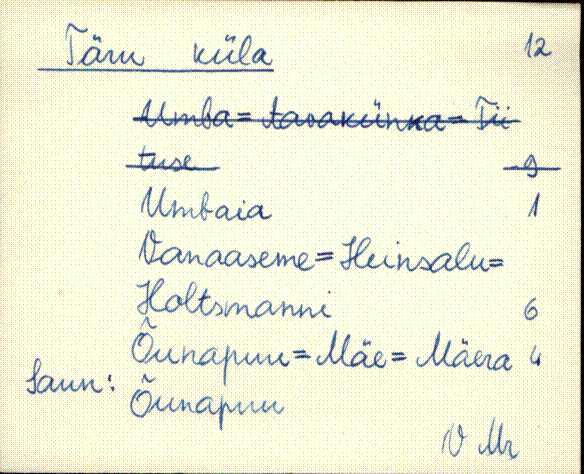 Täru küla 12
Umba = tavakünka = Tii
tuse 9
Umbaia 1
Vanaaseme = Heinsalu =
Holtsmanni 6
Õunapuu = Mäe = Mäera 4
Saun: Õunapuu
V Mr